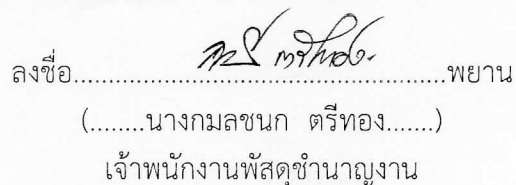 ลงชื่อ..................................................พยาน
(........นางกมลชนก ตรีทอง.......)
เจ้าพนักงานพัสดุชำนาญงาน